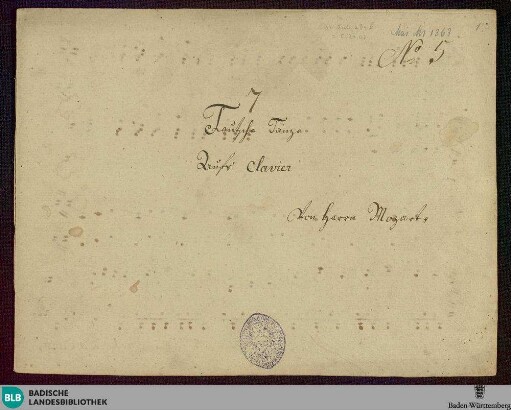 Mus. Hs. 1367
No 5
7
Teutsche Tänze.
Aufs Clavier
Von Herrn Mozart.
BLB BADISCHE
LANDESBIBLIOTHEK
Baden-Württemberg